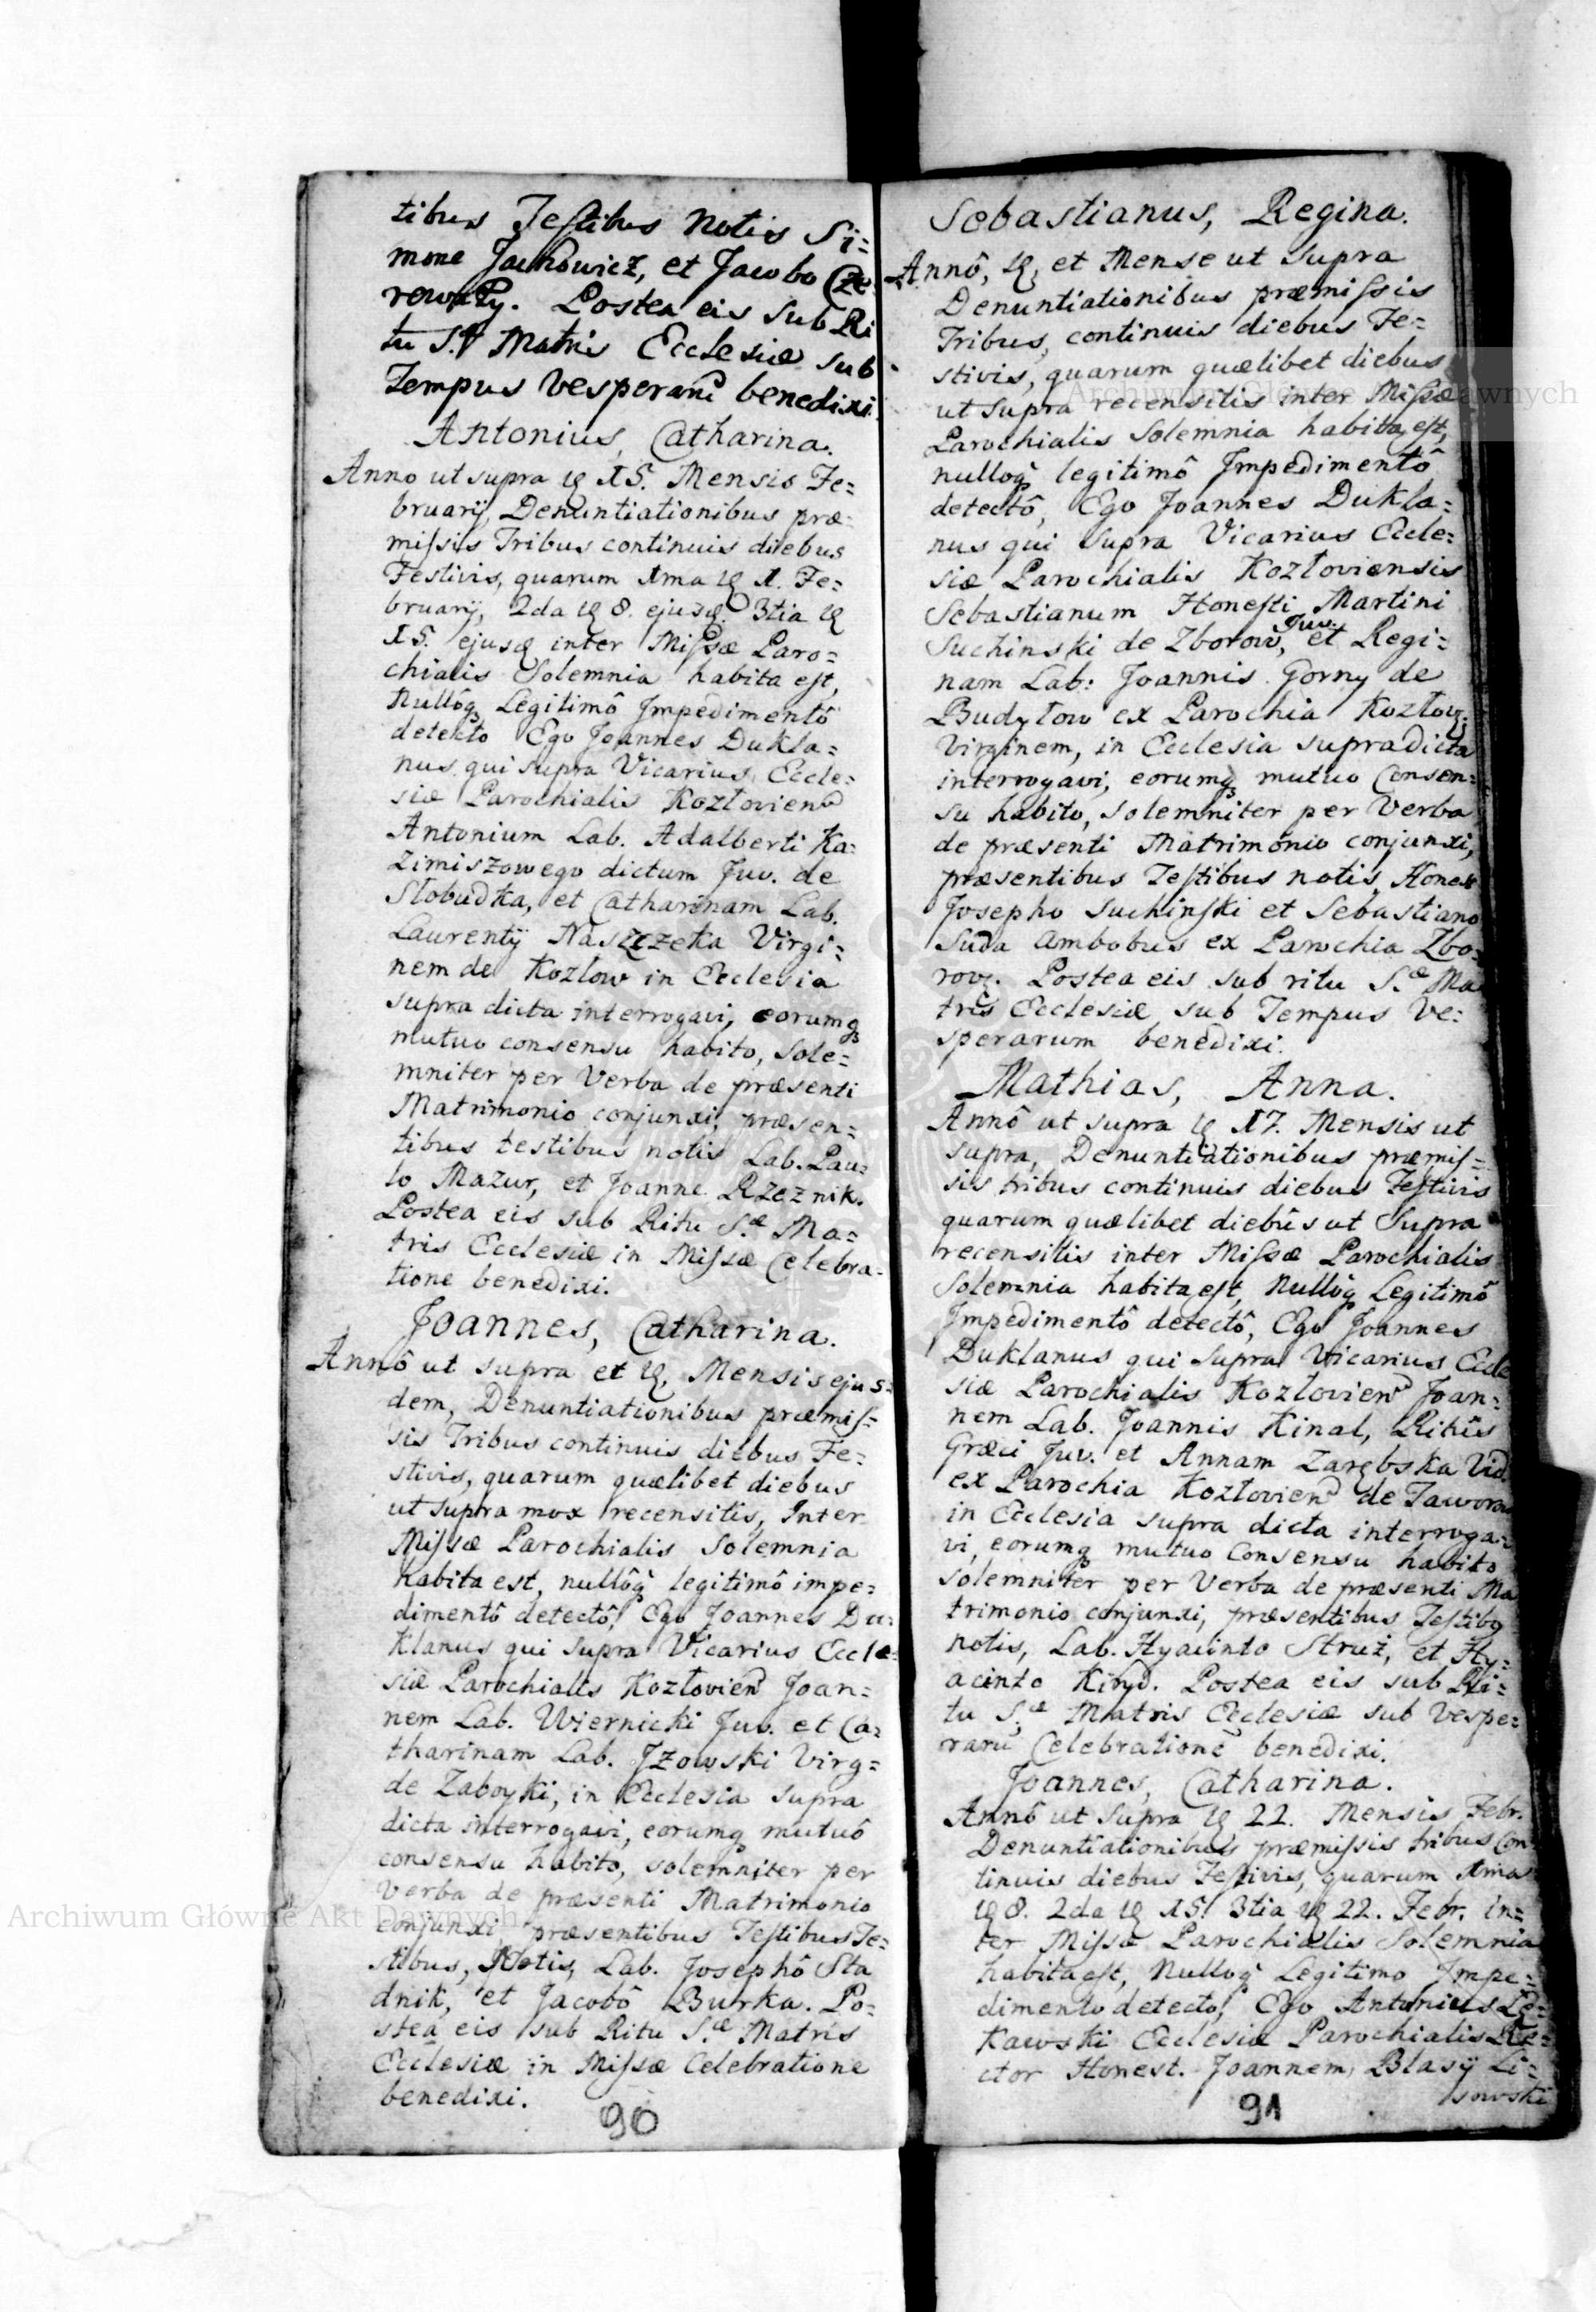 tibus Testibus Notis Si=
mone Jachowicz, et Jacobo Cze
rowaty. Postea eis sub Ri
tu S. Matris Ecclesiæ sub
Tempus Vesperarũ benedixi.
Antonius, Catharina.
Anno ut supra 15. Mensis Fe=
bruarij, Denuntiationibus præ=
missis Tribus continuis diebus
Festivis, quarum 1ma 1. Fe=
bruarij, 2da 8. ejusq. 3tia
15. ejusq inter Missæ Paro=
chialis Solemnia habita est,
Nullôq Legitimô Jmpedimentô
detecto Ego Joannes Dukla=
nus qui supra Vicarius Eccle=
siæ Parochialis Kozłovien
Antonium Lab. Adalberti Ka=
zimiszowego dictum Juv. de
Słobudka, et Catharinam Lab.
Laurentij Naszczeka Virgi=
nem de Kozłow in Ecclesia
supra dicta interrogavi, eorumq
mutuo consensu habito, sole=
mniter per Verba de præsenti
Matrimonio conjunxi, præsen=
tibus testibus notis Lab. Pau=
lo Mazur, et Joanne Rzeznik.
Postea eis sub Ritu S.æ Ma=
tris Ecclesiæ in Missæ Celebra=
tione benedixi.
Joannes, Catharina.
Annô ut supra et Mensis ejus=
dem, Denuntiationibus præmis=
sis Tribus continuis diebus Fe=
stivis, quarum quælibet diebus
ut supra mox recensitis, Inter
Missæ Parochialis Solemnia
habita est, nullôq legitimô impe=
dimentô detectô, Ego Joannes Du=
klanus qui supra Vicarius Eccle=
siæ Parochialis Kozłovien Joan=
nem Lab. Wiernicki Juv. et Ca=
tharinam Lab. Jzowski Virg=
de Zaboyki, in Ecclesia supra
dicta interrogavi, eorumq mutuô
consensu habito, solemniter per
Verba de præsenti Matrimonio
conjunxi, præsentibus Testibus Te=
stibus, Notis, Lab. Josephô Sta
dnik, et Jacobô Burka. Po=
stea eis sub Ritu S.æ Matris
Ecclesiæ in Missæ Celebratione
benedixi.
90
Sebastianus, Regina.
Annô, et Mense ut Supra
Denuntiationibus præmissis
Tribus, continuis diebus Fe=
stivis, quarum quælibet diebus
ut supra recensitis inter Missæ
Parochialis Solemnia habita est,
nulloq legitimô Jmpedimentô
detectô, Ego Joannes Dukla=
nus qui supra Vicarius Eccle=
siæ Parochialis Kozłoviensis
Sebastianum Honesti Martini
Suchinski de Zborow, Juv. et Regi=
nam Lab: Joannis Gorny de
Budyłow ex Parochia Kozłov.
Virginem, in Ecclesia supradicta
interrogavi, eorumq mutuo Consen=
su habito, solemniter per Verba
de præsenti Matrimonio conjunxi,
præsentibus Testibus notis, Honest
Josepho Suchinski et Sebastiano
Suda ambobus ex Parochia Zbo=
rov. Postea eis sub ritu S.æ Ma
tris Ecclesiæ, sub Tempus Ve=
sperarum benedixi.
Mathias, Anna.
Annô ut supra 17. Mensis ut
supra, Denuntiationibus præmis=
sis tribus continuis diebus Festivis
quarum quælibet diebûs ut Supra
recensitis inter Missæ Parochialis
Solemnia habita est, Nullôq Legitimô
Jmpedimentô detectô, Ego Joannes
Duklanus qui supra Vicarius Eccle
siæ Parochialis Kozłovien Joan=
nem Lab. Joannis Kinal, Ritûs
Græci Juv. et Annam Zarębska Vid.
ex Parochia Kozłovien de Jaworow
in Ecclesia supra dicta interroga=
vi, eorumq mutuo Consensu habito
solemniter per Verba de præsenti Ma
trimonio conjunxi, præsentibus Testibq
notis, Lab. Hyacinto Struż, et Hy=
acinto Kinyd. Postea eis sub Ri=
tu S.æ Matris Ecclesiæ sub Vespe=
rarũ Celebratione benedixi.
Joannes, Catharina.
Annô ut Supra 22. Mensis Febr.
Denuntiationibus præmissis tribus Con
tinuis diebus Festivis, quarum 1ma
8. 2da 15. 3tia 22. Febr. in=
ter Missæ Parochialis Solemnia
habita est, Nulloq Legitimo Jmpe=
dimento detecto, Ego Antonius Le=
kawski Ecclesiæ Parochialis Re=
ctor Honest. Joannem, Blasij Li=
sowski
91
Archiwum Główne Akt Dawnych
Archiwum Główne Akt Dawnych